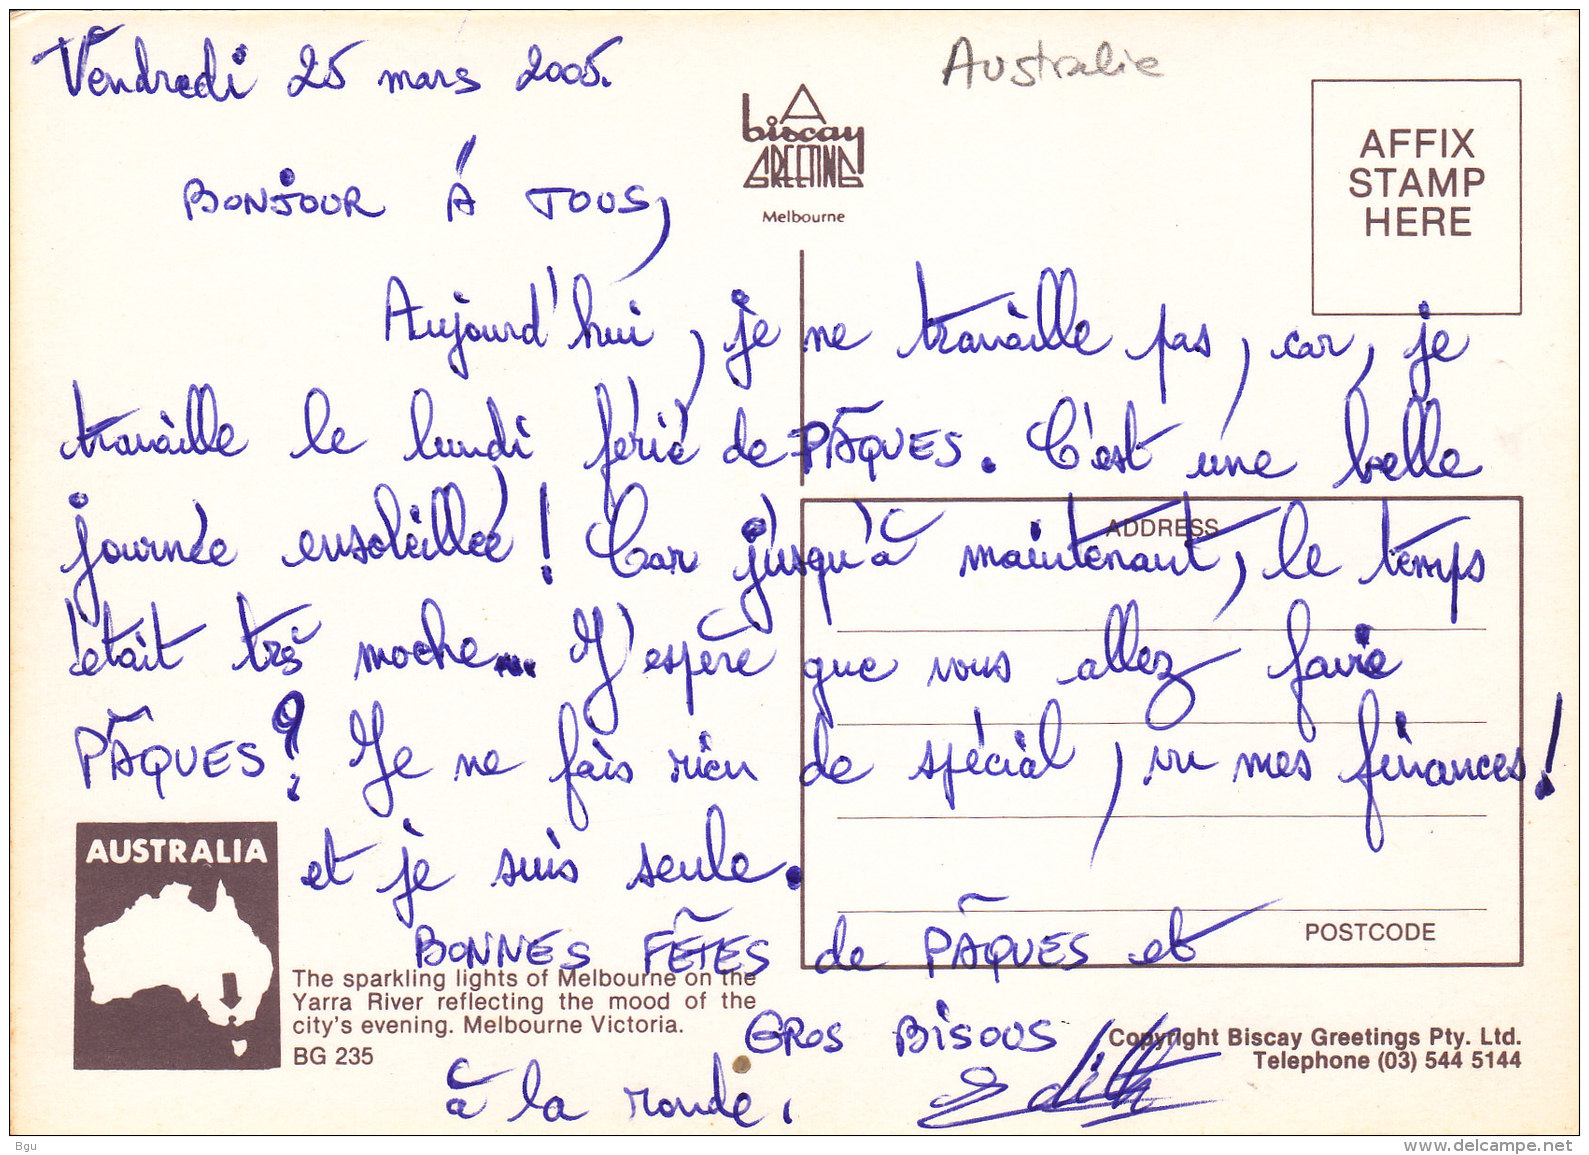 Vendredi 25 mars 2005.
Australie
A
biscay
GREETING
Melbourne
AFFIX
STAMP
HERE
BONJOUR À TOUS,
Aujourd'hui, je ne travaille pas, car, je
travaille le lundi férié de PÂQUES. C'est une belle
journée ensoleillée! Car jusqu'à maintenant, le temps
était très moche... J'espère que vous allez faire
PÂQUES? Je ne fais rien de spécial, vu mes finances!
et je suis seule.
BONNES FÊTES de PÂQUES et
GROS BISOUS
à la ronde.
Edith
ADDRESS
POSTCODE
AUSTRALIA
The sparkling lights of Melbourne on the
Yarra River reflecting the mood of the
city's evening. Melbourne Victoria.
BG 235
Copyright Biscay Greetings Pty. Ltd.
Telephone (03) 544 5144
Bgu
www.delcampe.net